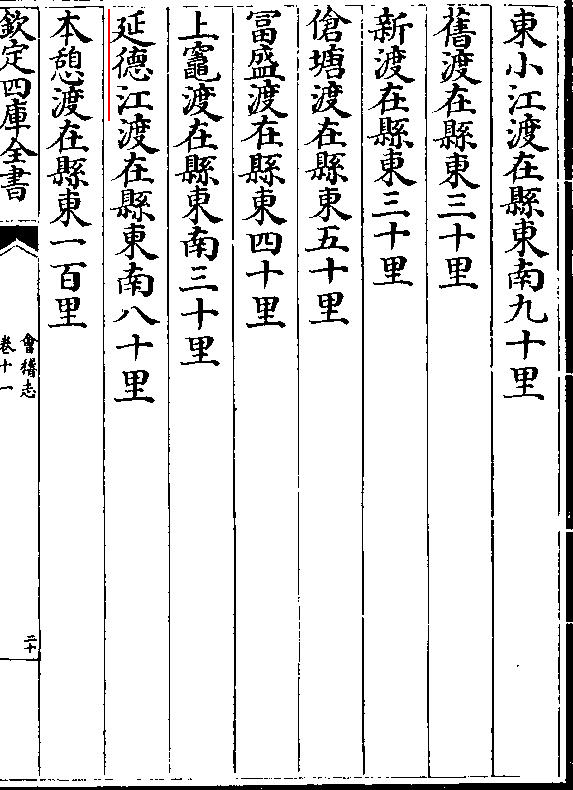 東小江渡在縣東南九十里
舊渡在縣東三十里
新渡在縣東三十里
傖塘渡在縣東五十里
富盛渡在縣東四十里
上竈渡在縣東南三十里
延德江渡在縣東南八十里
本憩渡在縣東一百里
欽定四庫全書
會稽志
卷十一
二十